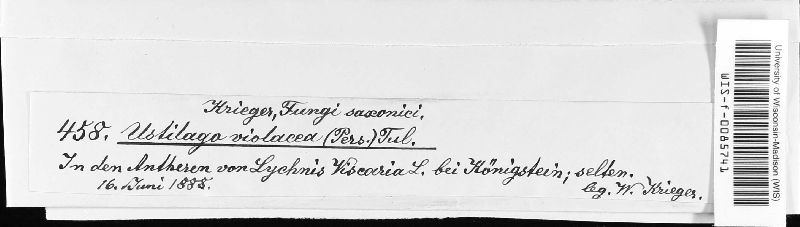 Krieger, Fungi saxonici.
458. Ustilago violacea (Pers.) Tul.
In den Antheren von Lychnis Viscaria L. bei Königstein; selten.
16. Juni 1888. leg. W. Krieger.
University of Wisconsin-Madison (WIS)
WIS-f-0085741